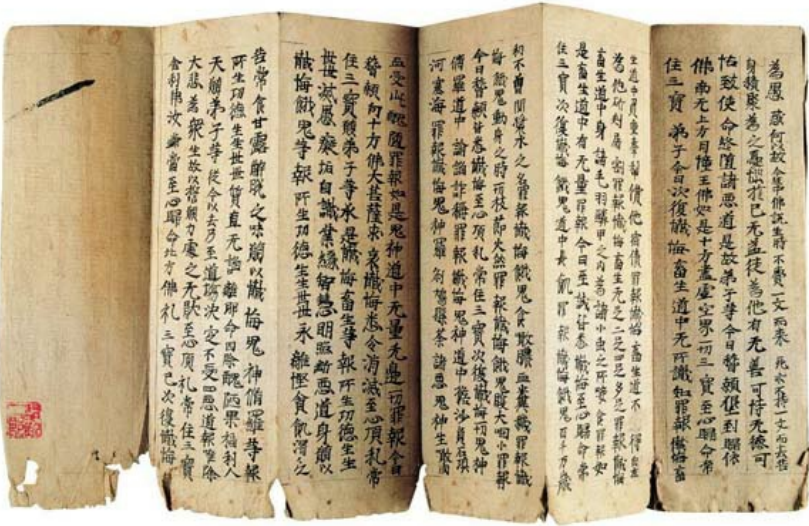 為愚 厳何以故 經中佛說生時不賷一文而來 死亦不持一文而去苦
身積聚為之憂惱於已无益徒為他有无善可恃无德可
怙致使命終墮諸惡道是故弟子等今日稽顙懇到歸依
佛南无上方月陸王佛如是十方盡虛空界一切三寶至心歸命常
住三寶 弟子今日次復懺悔畜生道中无所識知罪報懺悔畜
生道中負重牽犁償他宿債罪報懺悔畜生道不 得自在
為他斫刺屠割罪報懺悔畜生无足二足四足多足罪報懺悔
畜生道中身諸毛羽鱗甲之內為諸小虫之所唼食罪報如
是畜生道中有无量罪報今日至誠皆悉懺悔至心歸命常
住三寶次復懺悔餓鬼道中長飢罪報懺悔餓鬼百千万歲
初不曾聞漿水之名罪報懺悔餓鬼食噉膿血糞穢罪報懺
悔餓鬼動身之時一切枝節火然罪報懺悔餓鬼腹大咽小罪報
今日稽顙皆悉懺悔至心頂礼常住三寶次復懺悔一切鬼神
脩羅道中諂誑詐稱罪報懺悔鬼神道中擔沙負石填
河塞海罪報懺悔鬼神羅剎鳩槃荼諸惡鬼神生噉肉
血受此醜陋罪報如是鬼神道中无量无邊一切罪報今日
稽顙向十方佛大菩薩求哀懺悔悉令消滅至心頂礼常
住三寶願弟子等承是懺悔畜生等報所生功德生生
世世滅愚癡垢自識業緣智慧明照斷惡道身願以
懺悔餓鬼等報所生功德生生世世永離慳貪飢渴之
苦常食甘露解脫之味願以懺悔鬼神脩羅等報
所生功德生生世世質直无諂離邪命因除醜陋果福利人
天願弟子等從今以去乃至道場決定不受四惡道報唯除
大悲為眾生故以誓願力處之无猒至心頂礼常住三寶
舍利佛汝等當至心歸命北方佛礼三寶已次復懺悔